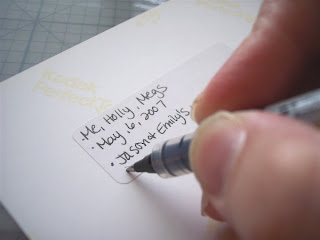 Kodak
Perfect
Me, Holly, Megs
· May, 6, 2007
· Jason & Emily's